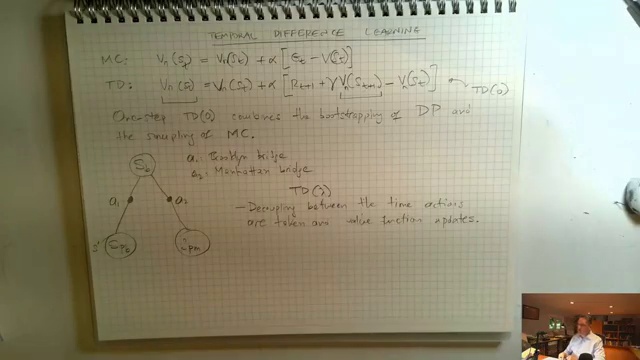 TEMPORAL DIFFERENCE LEARNING
MC: Vπ(St) = Vπ(St) + α [Gt − V(St)]
TD: Vπ(St) = Vπ(St) + α [Rt+1 + γ Vπ(St+1) − Vπ(St)]
TD(0)
One-step TD(0) combines the bootstrapping of DP and
the sampling of MC.
S0
a1: Brooklyn bridge
a2: Manhattan bridge
a1
a2
TD(λ)
- Decoupling between the time actions
are taken and value function updates.
s'
2pm